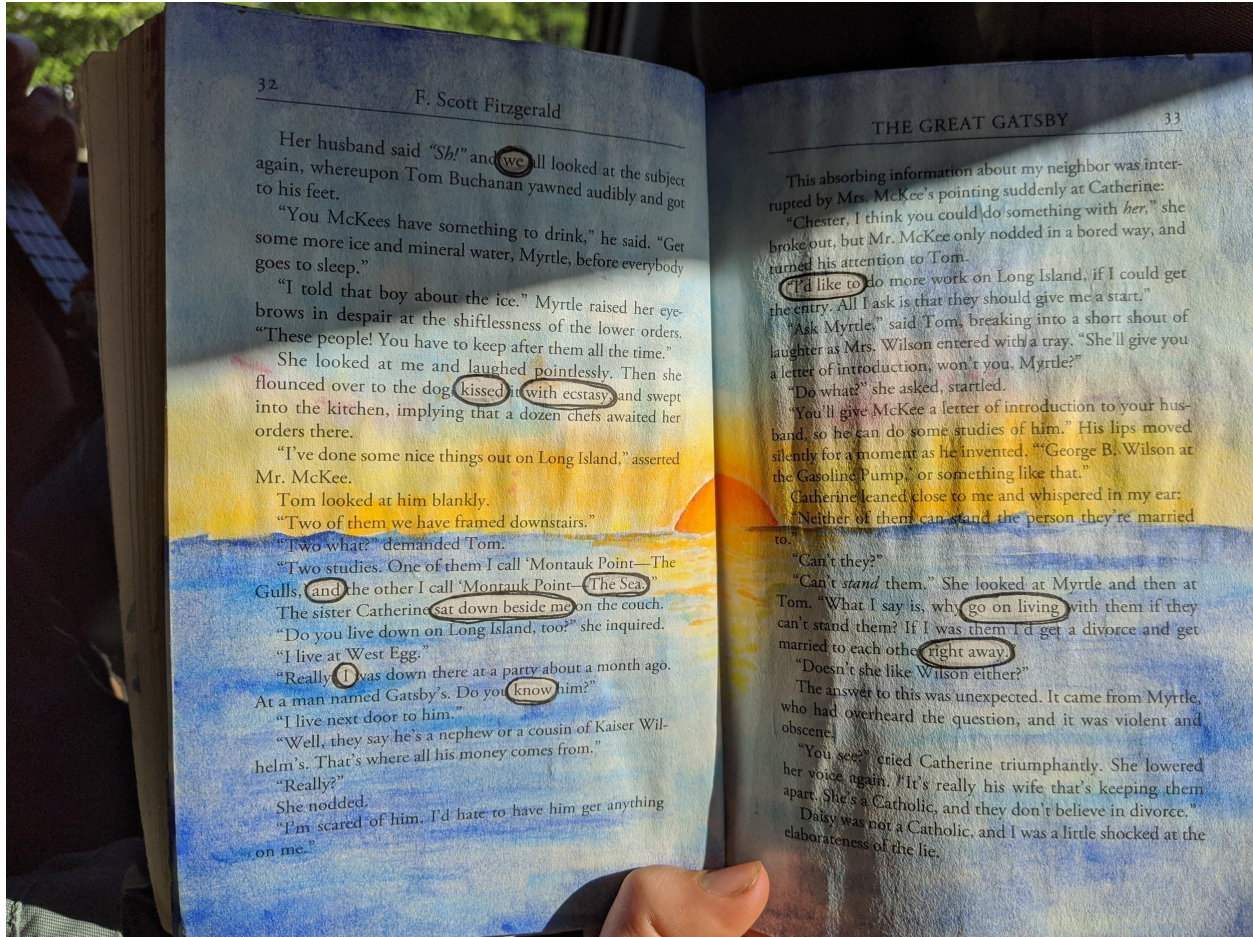 32
F. Scott Fitzgerald
Her husband said “Sh!” and we all looked at the subject
again, whereupon Tom Buchanan yawned audibly and got
to his feet.
“You McKees have something to drink,” he said. “Get
some more ice and mineral water, Myrtle, before everybody
goes to sleep.”
“I told that boy about the ice.” Myrtle raised her eye-
brows in despair at the shiftlessness of the lower orders.
“These people! You have to keep after them all the time.”
She looked at me and laughed pointlessly. Then she
flounced over to the dog, kissed it with ecstasy, and swept
into the kitchen, implying that a dozen chefs awaited her
orders there.
“I’ve done some nice things out on Long Island,” asserted
Mr. McKee.
Tom looked at him blankly.
“Two of them we have framed downstairs.”
“Two what?” demanded Tom.
“Two studies. One of them I call ‘Montauk Point—The
Gulls,’ and the other I call ‘Montauk Point—The Sea.’ ”
The sister Catherine sat down beside me on the couch.
“Do you live down on Long Island, too?” she inquired.
“I live at West Egg.”
“Really? I was down there at a party about a month ago.
At a man named Gatsby’s. Do you know him?”
“I live next door to him.”
“Well, they say he’s a nephew or a cousin of Kaiser Wil-
helm’s. That’s where all his money comes from.”
“Really?”
She nodded.
“I’m scared of him. I’d hate to have him get anything
on me.”
THE GREAT GATSBY
33
This absorbing information about my neighbor was inter-
rupted by Mrs. McKee’s pointing suddenly at Catherine:
“Chester, I think you could do something with her,” she
broke out, but Mr. McKee only nodded in a bored way, and
turned his attention to Tom.
“I’d like to do more work on Long Island, if I could get
the entry. All I ask is that they should give me a start.”
“Ask Myrtle,” said Tom, breaking into a short shout of
laughter as Mrs. Wilson entered with a tray. “She’ll give you
a letter of introduction, won’t you, Myrtle?”
“Do what?” she asked, startled.
“You’ll give McKee a letter of introduction to your hus-
band, so he can do some studies of him.” His lips moved
silently for a moment as he invented. “‘George B. Wilson at
the Gasoline Pump,’ or something like that.”
Catherine leaned close to me and whispered in my ear:
“Neither of them can stand the person they’re married
to.”
“Can’t they?”
“Can’t stand them.” She looked at Myrtle and then at
Tom. “What I say is, why go on living with them if they
can’t stand them? If I was them I’d get a divorce and get
married to each other right away.”
“Doesn’t she like Wilson either?”
The answer to this was unexpected. It came from Myrtle,
who had overheard the question, and it was violent and
obscene.
“You see?” cried Catherine triumphantly. She lowered
her voice again. “It’s really his wife that’s keeping them
apart. She’s a Catholic, and they don’t believe in divorce.”
Daisy was not a Catholic, and I was a little shocked at the
elaborateness of the lie.